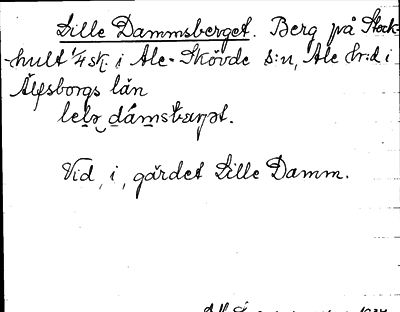 Lille Dammsberget. Berg på Stock-
-hult 1/4 sk. i Ale-Skövde s:n, Ale hr:d i
Älfsborgs län

Vid, i, gärdet Lille Damm.